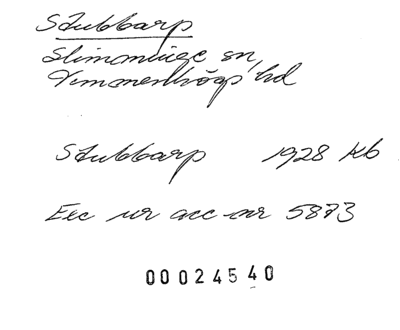 Stubbarp
Slimminge sn,
Vemmenhögs hd
Stubbarp 1928 kb
Exc ur acc-nr 5873
00024540